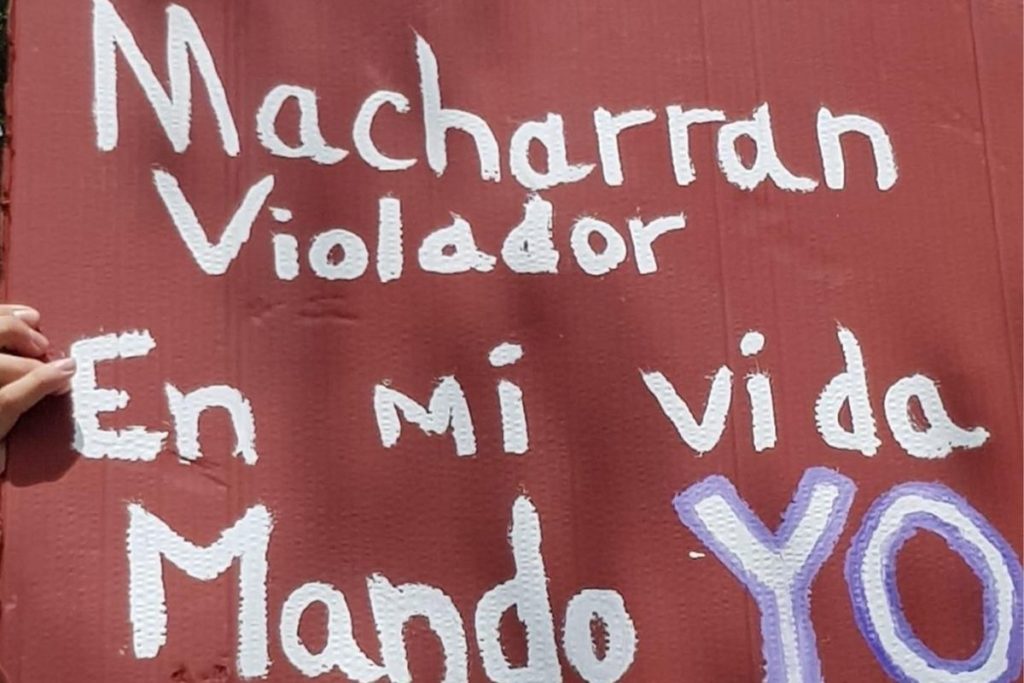 Macharran
Violador
En mi vida
Mando YO